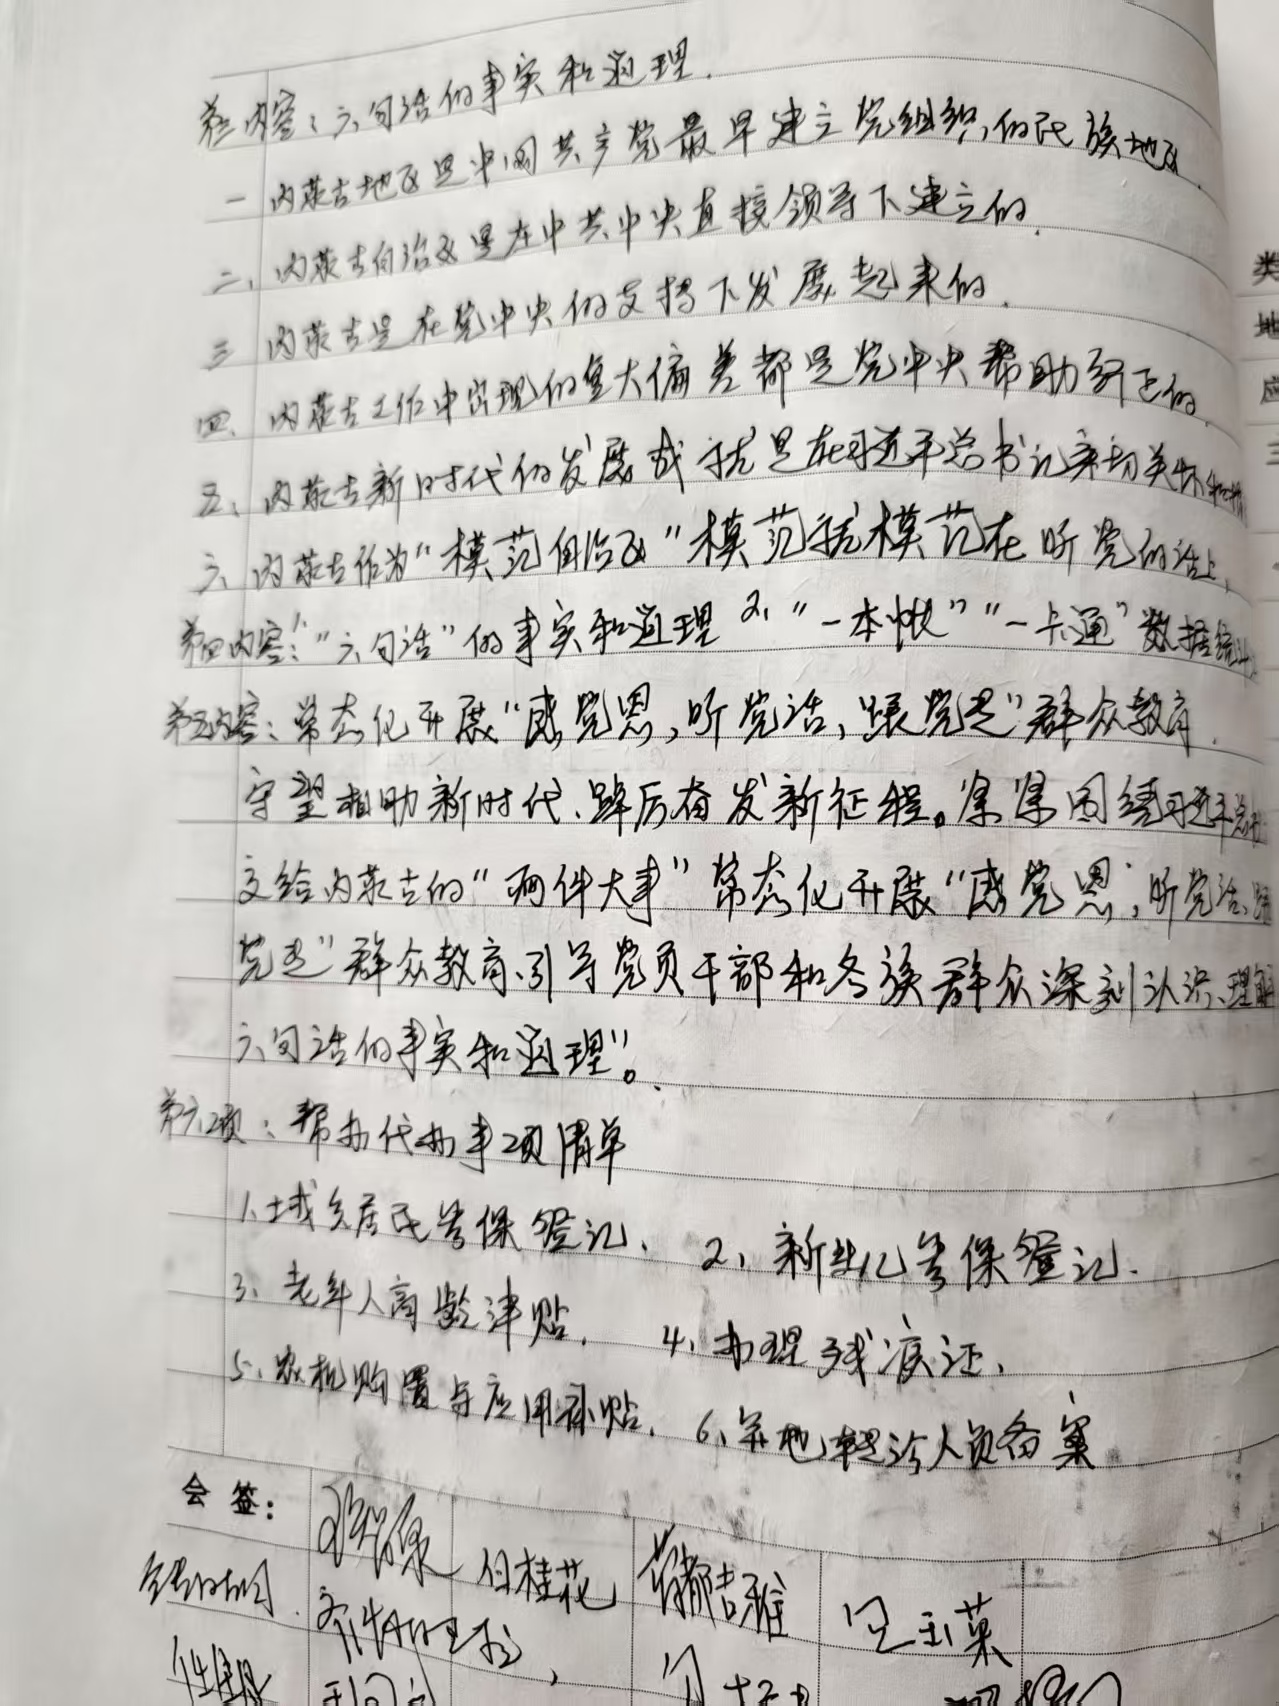 第三内容：六句话的事实和道理.
一 内蒙古地区是中国共产党最早建立党组织的民族地区.
二、内蒙古自治区是在中共中央直接领导下建立的.
三 内蒙古是在党中央的支持下发展起来的.
四、内蒙古工作中出现的重大偏差都是党中央帮助纠正的.
五、内蒙古新时代的发展成就是在习近平总书记亲切关怀
六、内蒙古作为“模范自治区”模范就模范在听党的话上.
第四内容：1、“六句话”的事实和道理 2、“一本帐”“一卡通”数据统计
第五内容：常态化开展“感党恩，听党话，跟党走”群众教育.
守望相助新时代、踔厉奋发新征程。紧紧围绕习近平总书
交给内蒙古的“两件大事”常态化开展“感党恩，听党话、跟
党走”群众教育、引导党员干部和各族群众深刻认识、理解
六句话的事实和道理”。
第六项：帮办代办事项清单
1、城乡居民医保登记、 2、新生儿医保登记.
3、老年人高龄津贴. 4、办理残疾证、
5、农机购置与应用补贴. 6、异地就诊人员备案
会签：
白桂花
类
地
应
三